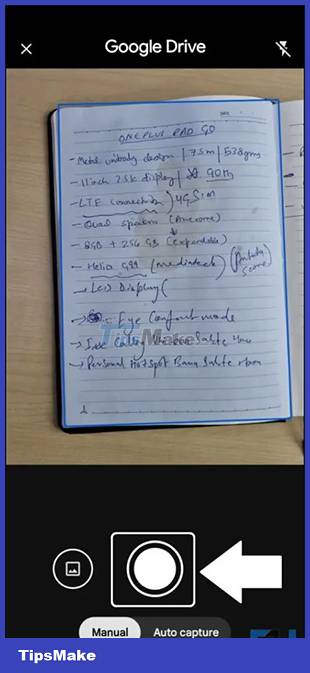 Google Drive
ONEPLUS PAD GO
- Metal unibody design | 7.5m | 538 gms
- 11 inch 2.5k display | 90Hz
- LTE connection) 4G SIM
- Quad speakers (Awesome)
- 8GB + 256 GB (expandable)
- Helio G99 (mediatek) (Antutu Score)
→ LCD Display (
→ Eye Comfort mode
TipsMake
→ Calling
→ Personal Hotspot
Manual Auto capture
TipsMake